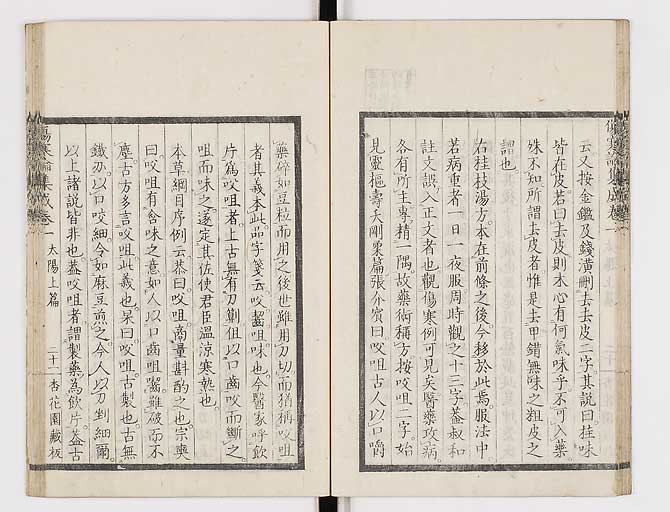 云又按金鑑及錢潢刪去去皮二字其說曰桂味
皆在皮若曰去皮則木心有何氣味乎不可入藥
殊不知所謂去皮者惟是去甲錯無味之粗皮之
謂也
右桂枝湯方本在前條之後今移於此焉服法中
若病重者一日一夜服周時觀之十三字蓋叔和
註文誤入正文者也觀傷寒例可見矣醫藥攻病
各有所主專精一隅故藥術稱方按㕮咀二字始
見靈樞壽夭剛柔篇張介賓曰㕮咀古人以口嚼
藥碎如豆粒而用之後世雖用刀切而猶稱㕮咀
者其義本此品字箋云㕮齧咀味也今醫家呼飲
片為㕮咀者上古無有刀劁但以口齒㕮而斷之
咀而味之遂定其佐使君臣溫涼寒熱也
本草綱目序例云恭曰㕮咀商量斟酌之也宗奭
曰㕮咀有含味之意如人以口齒咀嚙雖破而不
塵古方多言㕮咀此義也杲曰㕮咀古製也古無
鐵刃以口咬細令如麻豆煎之今人以刀剉細爾
以上諸說皆非也蓋㕮咀者謂製藥為飲片蓋古
傷寒論集成卷一 太陽上篇 二十一 杏花園藏板